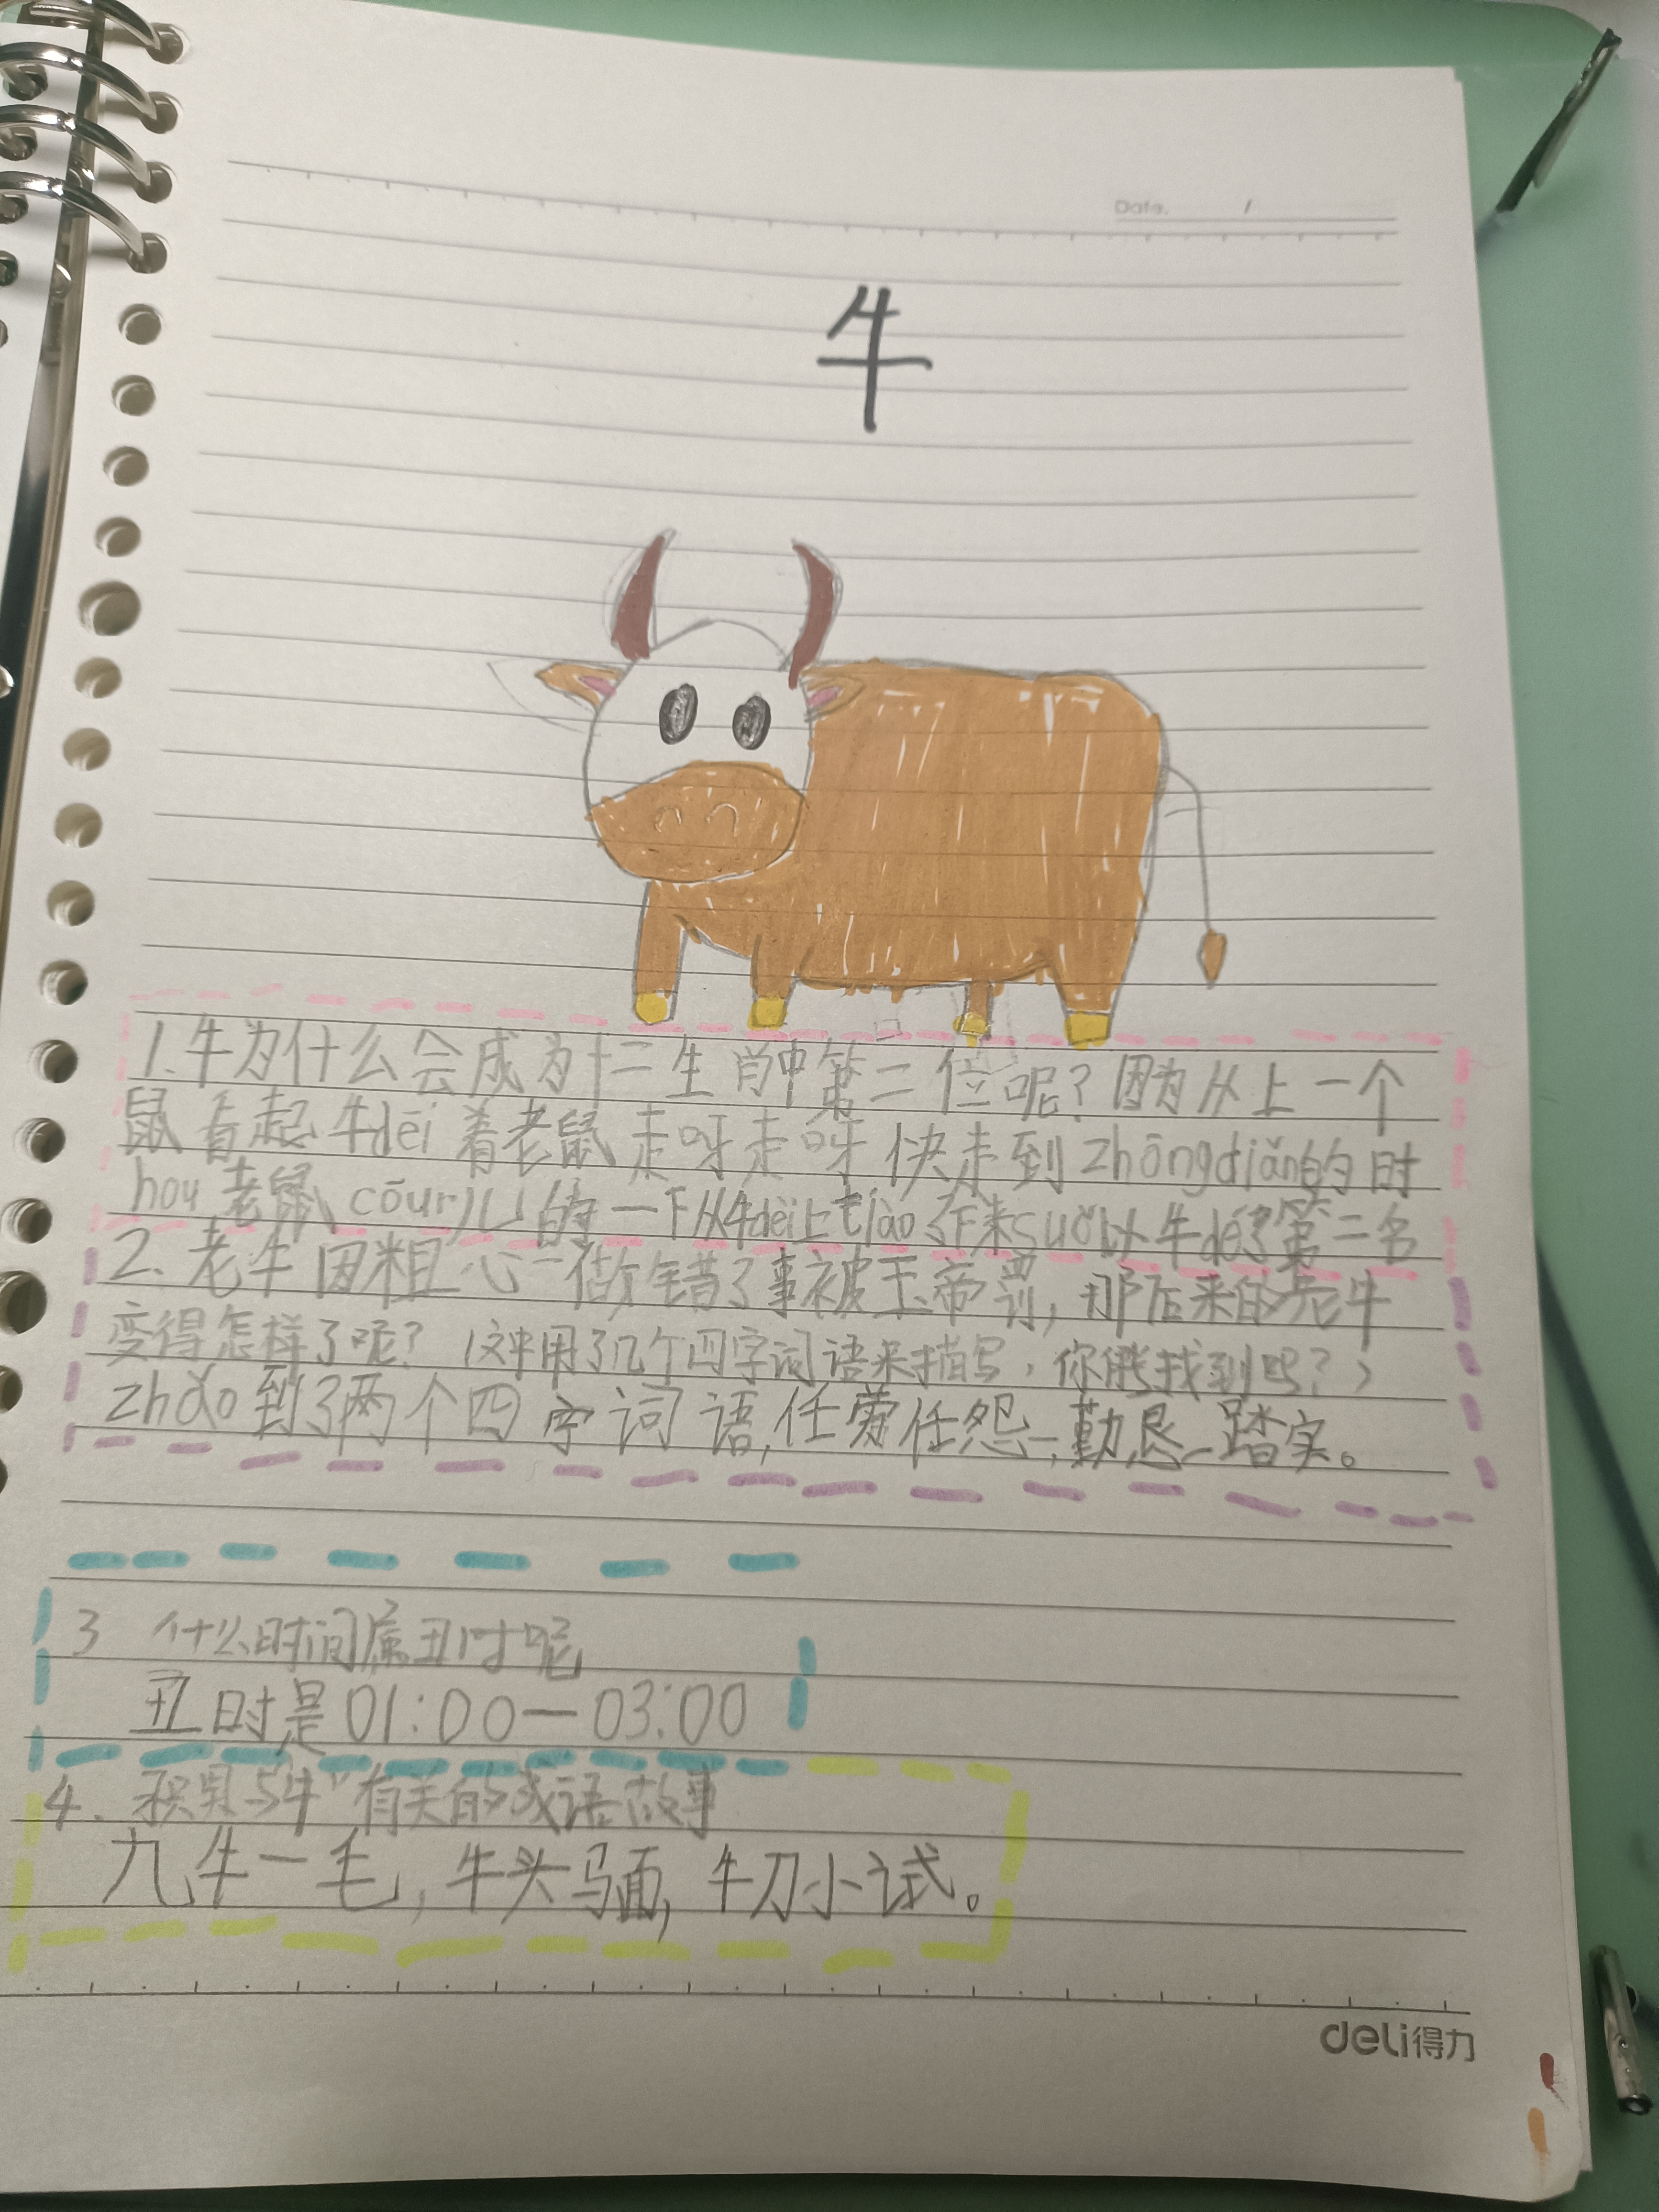 Date. /
牛
1.牛为什么会成为十二生肖中第二位呢?因为从上一个
鼠看起牛dēi着老鼠走呀走呀快走到zhōngdiǎn的时
hou老鼠cōur儿的一下从牛dēi上tiào了下来suǒ以牛dé了第二名
2.老牛因粗心一做错了事被玉帝罚,那后来的老牛
变得怎样了呢?(这中用了几个四字词语来描写,你能找到吗?)
zhǎo到了两个四字词语,任劳任怨,勤恳踏实。
3 什么时间属丑时呢
丑时是01:00—03:00
4.积累与“牛”有关的成语故事
九牛一毛,牛头马面,牛刀小试。
deli得力